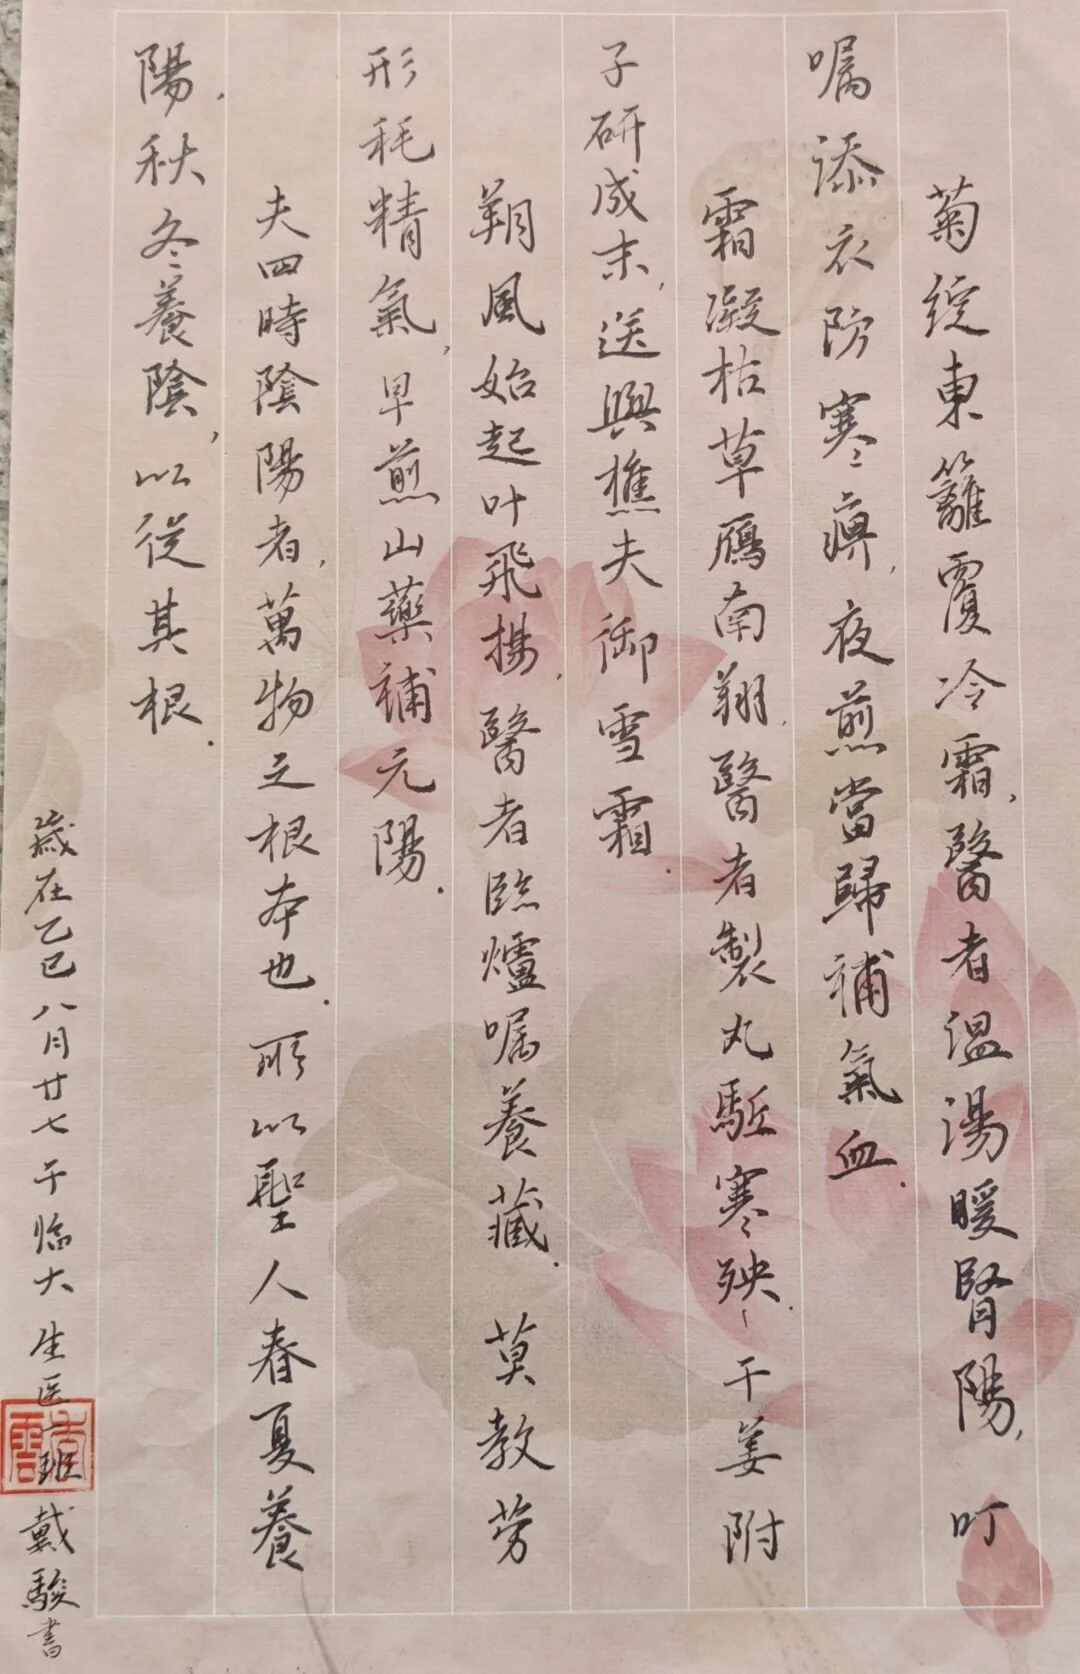 菊绽東籬覆冷霜,醫者溫湯暖腎陽,叮
嘱添衣防寒痹,夜煎當歸補氣血.
霜凝枯草雁南翔,醫者製丸駈寒殃.干姜附
子研成末,送與樵夫御雪霜.
朔風始起叶飛揚,醫者臨爐嘱養藏.莫教勞
形耗精氣,早煎山藥補元陽.
夫四時陰陽者,萬物之根本也.所以聖人春夏養
陽,秋冬養陰,以從其根.
歲在乙巳八月廿七午临大生医一班戴駿書